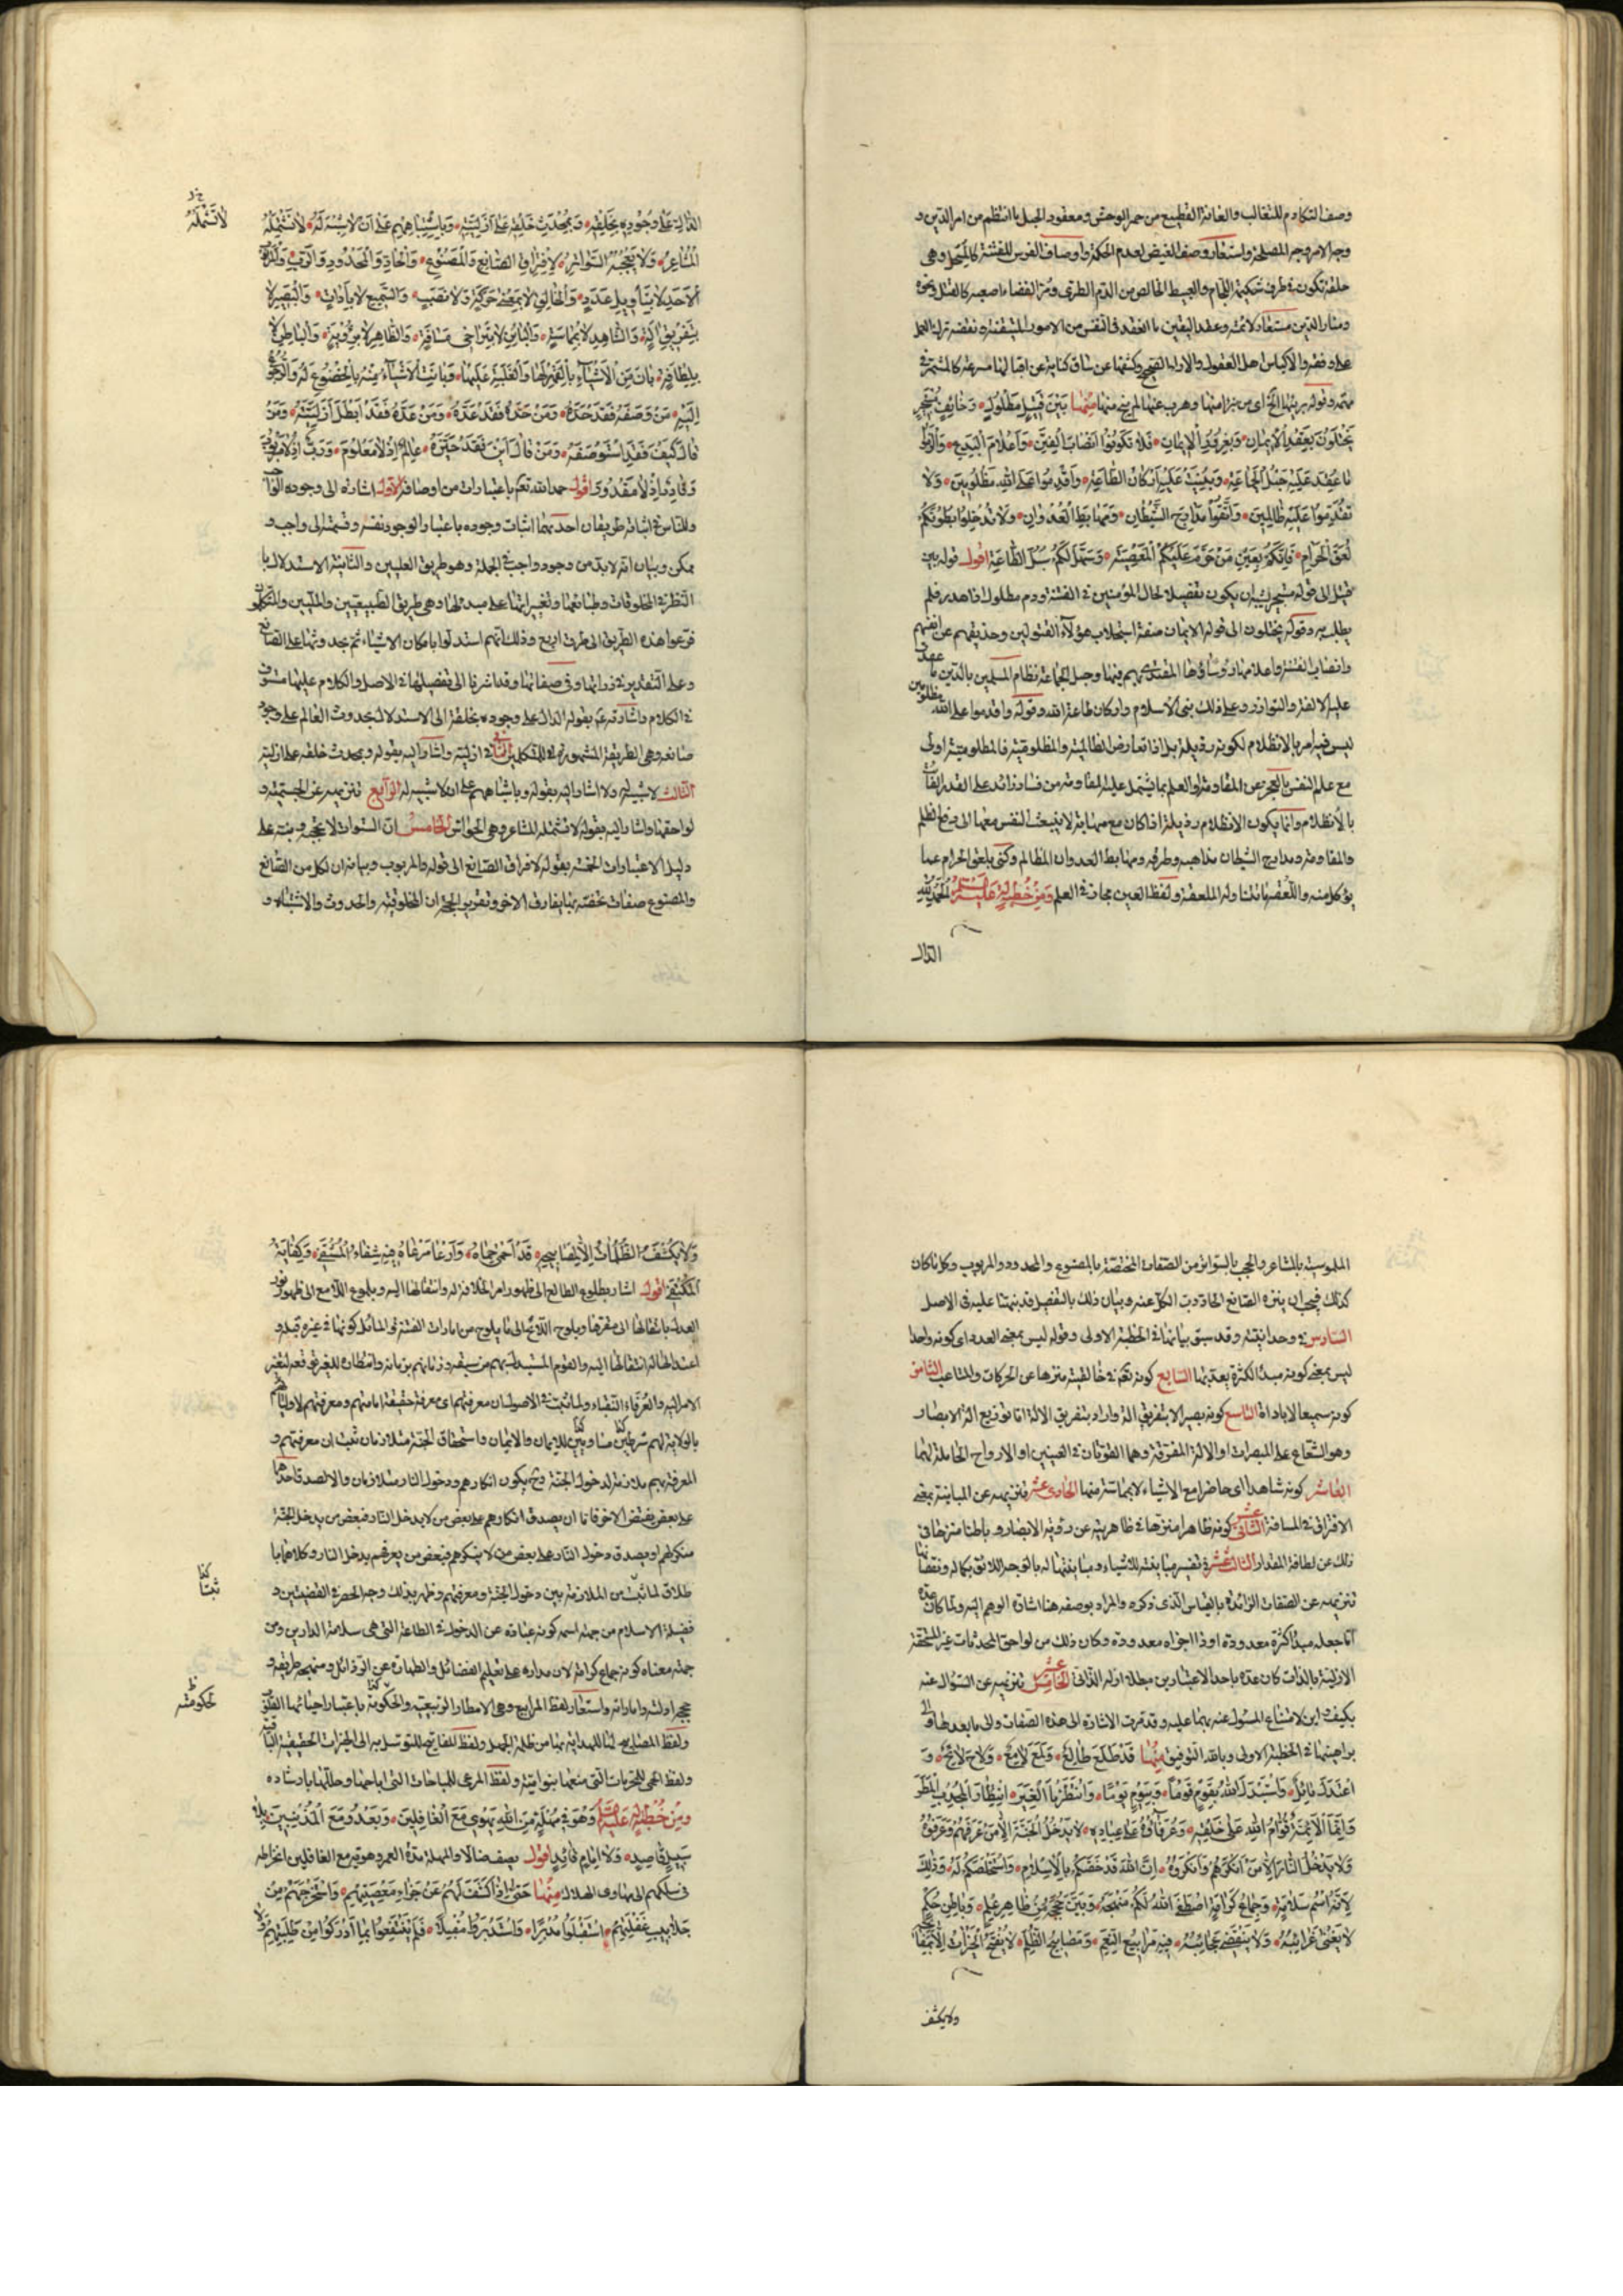 وصف التكادم للتغالب والعانة القطيع من حمر الوحش ومعقود الحبل ما انتظم من امر الدين و
وجه الامر وجه المصلحة واستعار وصف الغيض لعدم الحكمة واوصاف الفرس للفتنة كالمسحل وهى
حلقة تكون فى طرف شكيمة اللجام والعبيط الخالص من الدم الطرى ومر القضاء اصعبه كالقتل ونحوه
ومنار الدين مستعار لائمته وعقد اليقين ما انعقد فى النفس من الامور المتيقنة ونقضه ترك العمل
على وفقه والاكياس اهل العقول والاراء الصحيح وكشفها عن ساق كناية عن اقبالها مسرعة كالمشمر فى
مهمه وقوله بريئها الخ اى من تبرا منها وهرب عنها لم ينج منها مِنْهَا بَيْنَ قَتِيلٍ مَطْلُولٍ وَخَائِفٍ مُسْتَجِيرٍ
يَخْتِلُونَ بِعَقْدِ الْاَيْمَانِ وَبِغُرُورِ الْاِيمَانِ فَلَا تَكُونُوا اَنْصَابَ الْفِتَنِ وَاَعْلَامَ الْبِدَعِ وَالْزَمُوا
مَا عُقِدَ عَلَيْهِ حَبْلُ الْجَمَاعَةِ وَبُنِيَتْ عَلَيْهِ اَرْكَانُ الطَّاعَةِ وَاَقْدِمُوا عَلَى اللهِ مَظْلُومِينَ وَلَا
تَقْدَمُوا عَلَيْهِ ظَالِمِينَ وَاتَّقُوا مَدَارِجَ الشَّيْطَانِ وَمَهَابِطَ الْعُدْوَانِ وَلَا تُدْخِلُوا بُطُونَكُمْ
لُعَقَ الْحَرَامِ فَاِنَّكُمْ بِعَيْنِ مَنْ حَرَّمَ عَلَيْكُمُ الْمَعْصِيَةَ وَسَهَّلَ لَكُمْ سُبُلَ الطَّاعَةِ اقول قوله بين
قتيل الى قوله مستجير يشبه ان يكون تفصيلا لحال المؤمنين فى الفتنة ودم مطلول اذا هدر فلم
يطلب به وقوله يختلون الى قوله الايمان صفة استجلاب هؤلاء المفتولين وخديعتهم عن انفسهم
وانصاب الفتنة واعلامها رؤساؤها المقتدى بهم فيها وحبل الجماعة نظام المسلمين بالدين ما عقد
عليه الالفة والتوازر وعلى ذلك بنى الاسلام واركان طاعة الله وقوله واقدموا على الله مظلومين
ليس فيه امر بالانظلام لكونه رذيلة بل اذا تعارض الظالمية والمظلومية فالمظلومية اولى
مع علم النفس بالعجز عن المقاومة والعلم بما يشتمل عليه المقاومة من فساد زائد على القدر الفائت
بالانظلام وانما يكون الانظلام رذيلة اذا كان مع مهانة لا ينبعث النفس معها الى دفع الظلم
والمقاومة ومدارج الشيطان مذاهبه وطرقه ومهابط العدوان المظالم وكنى بلعق الحرام عما
يؤكل منه واللعقة ما تتناوله الملعقة ولفظ العين مجاز فى العلم وَمِنْ خُطْبَةٍ لَهُ عَلَيْهِ السَّلَامُ اَلْحَمْدُ لِلّٰهِ
الدال
الدَّالِّ عَلَى وُجُودِهِ بِخَلْقِهِ وَبِمُحْدَثِ خَلْقِهِ عَلَى اَزَلِيَّتِهِ وَبِاشْتِبَاهِهِمْ عَلَى اَنْ لَا شَبَهَ لَهُ لَا تَشْتَمِلُهُ
الْمَشَاعِرُ وَلَا تَحْجُبُهُ السَّوَاتِرُ لِافْتِرَاقِ الصَّانِعِ وَالْمَصْنُوعِ وَالْحَادِّ وَالْمَحْدُودِ وَالرَّبِّ وَالْمَرْبُوبِ
اَلْاَحَدِ لَا بِتَاْوِيلِ عَدَدٍ وَالْخَالِقِ لَا بِمَعْنَى حَرَكَةٍ وَلَا نَصَبٍ وَالسَّمِيعِ لَا بِاَدَاةٍ وَالْبَصِيرِ لَا
بِتَفْرِيقِ آلَةٍ وَالشَّاهِدِ لَا بِمُمَاسَّةٍ وَالْبَائِنِ لَا بِتَرَاخِى مَسَافَةٍ وَالظَّاهِرِ لَا بِرُؤْيَةٍ وَالْبَاطِنِ لَا
بِلَطَافَةٍ بَانَ مِنَ الْاَشْيَاءِ بِالْقَهْرِ لَهَا وَالْغَلَبَةِ عَلَيْهَا وَبَانَتِ الْاَشْيَاءُ مِنْهُ بِالْخُضُوعِ لَهُ وَالرُّجُوعِ
اِلَيْهِ مَنْ وَصَفَهُ فَقَدْ حَدَّهُ وَمَنْ حَدَّهُ فَقَدْ عَدَّهُ وَمَنْ عَدَّهُ فَقَدْ اَبْطَلَ اَزَلِيَّتَهُ وَمَنْ
قَالَ كَيْفَ فَقَدِ اسْتَوْصَفَهُ وَمَنْ قَالَ اَيْنَ فَقَدْ حَيَّزَهُ عَالِمٌ اِذْ لَا مَعْلُومَ وَرَبٌّ اِذْ لَا مَرْبُوبَ
وَقَادِرٌ اِذْ لَا مَقْدُورَ اقول حمد الله تعالى باعتبارات من اوصافه الاول اشارته الى وجوده الواجب
وللناس فى اثباته طريقان احديهما اثبات وجوده باعتبار الوجود نفسه وقسمته الى واجب و
ممكن وبيان انه لابد من وجود واجب فى الجملة وهو طريق العليين والثانية الاستدلال با
النظر فى المخلوقات وطبائعها وتغيراتها على مبدئها وهى طريق الطبيعيين والمليين والمتكلمون
فرعوا هذه الطريق الى طرق اربع وذلك انهم استدلوا بامكان الاشياء ثم بحدوثها على الصانع
وعلى التقديرين فى ذواتها وفى صفاتها وقد اشرنا الى تفصيلها فى الاصل والكلام عليها مستوفى
فى الكلام واشارته بقوله الدال على وجوده بخلقه الى الاستدلال بحدوث العالم على وجود
صانعه وهى الطريقة المشهورة للمتكلمين الثانى ازليته واشار اليه بقوله وبمحدث خلقه على ازليته
الثالث لا شبيه له ولا اشار اليه بقوله وباشتباههم على ان لا شبيه له الرابع تنزيهه عن الجسمية و
لواحقها واشار اليه بقوله لا تشتمله المشاعر وهى الحواس الخامس ان السواتر لا تحجبه ونبه على
دليل الاعتبارات الخمسة بقوله لافتراق الصانع الى قوله والمربوب وبيانه ان لكل من الصانع
والمصنوع صفات تخصه بها يفارق الاخر وتقرير الحجة ان المخلوقية والحدوث والاشتباه و
لَا تَشْمَلُهُ
الملموسية بالمشاعر والحجب بالسواتر من الصفات المختصة بالمصنوع والمحدود والمربوب وكل ما كان
كذلك فيجب ان ينزه الصانع الحاد رب الكل عنه وبيان ذلك بالتفصيل قد نبهنا عليه فى الاصل
السادس فى وحدانيته وقد سبق بيانها فى الخطبة الاولى وقوله ليس بمعنى العدد اى كونه واحدا
ليس بمعنى كونه مبدأ لكثرة يعد بها السابع كونه تعالى فى خالقيته منزها عن الحركات والمتاعب الثامن
كونه سميعا لا باداة التاسع كونه بصيرا لا بتفريق آلة واراد بتفريق الالة اما توزيع الة الابصار
وهو الشعاع على المبصرات او الالة المفرقة وهما القوتان فى العينين او الارواح الحاملة لهما
العاشر كونه شاهدا اى حاضرا مع الاشياء لا بمماسة منها الحادى عشر تنزيهه عن المباينة بمعنى
الافتراق فى المسافة الثانى عشر كونه ظاهرا منزها فى ظاهريته عن رؤية الابصار وباطنا منزها فى
ذلك عن لطافة المقدار الثالث عشر تفسير مباينته للاشياء ومباينتها له بالوجه اللائق بكماله ونقصانها
تنزيهه عن الصفات الزائدة بالقياس الذى ذكره والمراد بوصفه هنا اشارة الوهم اليه ولما كان عده
اما جعله مبدأ كثرة معدودة او ذا اجزاء معدودة وكان ذلك من لواحق المحدثات غير المستحقة
الازلية بالذات كان عده باحد الاعتبارين مبطلا ازله الذاتى الخامس عشر تنزيهه عن السؤال عنه
بكيف واين لامتناع المسئول عنه بهما عليه وقد مرت الاشارة الى هذه الصفات والى ما بعدها والى
براهينها فى الخطبة الاولى وبالله التوفيق مِنْهَا قَدْ طَلَعَ طَالِعٌ وَلَمَعَ لَامِعٌ وَلَاحَ لَائِحٌ وَ
اعْتَدَلَ مَائِلٌ وَاسْتَبْدَلَ اللهُ بِقَوْمٍ قَوْماً وَبِيَوْمٍ يَوْماً وَانْتَظَرْنَا الْغِيَرَ انْتِظَارَ الْمُجْدِبِ الْمَطَرَ
وَاِنَّمَا الْاَئِمَّةُ قُوَّامُ اللهِ عَلَى خَلْقِهِ وَعُرَفَاؤُهُ عَلَى عِبَادِهِ لَا يَدْخُلُ الْجَنَّةَ اِلَّا مَنْ عَرَفَهُمْ وَعَرَفُوهُ
وَلَا يَدْخُلُ النَّارَ اِلَّا مَنْ اَنْكَرَهُمْ وَاَنْكَرُوهُ اِنَّ اللهَ قَدْ خَصَّكُمْ بِالْاِسْلَامِ وَاسْتَخْلَصَكُمْ لَهُ وَذٰلِكَ
لِاَنَّهُ اسْمُ سَلَامَةٍ وَجِمَاعُ كَرَامَةٍ اصْطَفَى اللهُ لَكُمْ مَنْهَجَهُ وَبَيَّنَ حُجَجَهُ مِنْ ظَاهِرِ عِلْمٍ وَبَاطِنِ حُكْمٍ
لَا تَفْنَى غَرَائِبُهُ وَلَا يَنْقَضِى عَجَائِبُهُ فِيهِ مَرَابِيعُ النِّعَمِ وَمَصَابِيحُ الظُّلَمِ لَا تُفْتَحُ الْخَيْرَاتُ اِلَّا بِمَفَاتِيحِهِ
ولا يكشف
وَلَا يُكْشَفُ الظُّلُمَاتُ اِلَّا بِمَصَابِيحِهِ قَدْ اَحْمَى حِمَاهُ وَاَرْعَا مَرْعَاهُ فِيهِ شِفَاءُ الْمُشْتَفِى وَكِفَايَةُ
الْمُكْتَفِى اقول اشار بطلوع الطالع الى ظهور امر الخلافة له وانتقالها اليه وبلموع اللامع الى ظهور نور
العدل بانتقالها الى مقرها وبلوح اللائح الى ما يلوح من امارات الفتنة والمائل كونها فى غيره قبله و
اعتدالها له انتقالها اليه والقوم المستبدل بهم من سبقه وزمانهم بزمانه وانتظاره للغير توقعه لتغير
الامر اليه والعرفاء النقباء ولما ثبت فى الاصول ان معرفتهم اى معرفة حقيقة امامتهم ومعرفتهم لاوليائهم
بالولاية لهم شرطين مساويين للايمان والايمان واستحقاق الجنة متلازمان ثبت ان معرفتهم و
المعرفة بهم ملازمة لدخول الجنة وح يكون انكارهم ودخول النار متلازمان والا لصدق احدهما
على بعض نقيض الاخر فاما ان يصدق انكارهم على بعض من لا يدخل النار فبعض من يدخل الجنة
منكر لهم او يصدق دخول النار على بعض من لا ينكرهم فبعض من يعرفهم يدخل النار وكلاهما با
طلان لما ثبت من الملازمة بين دخول الجنة ومعرفتهم وظهر بذلك وجه الحصر فى القضيتين و
فضيلة الاسلام من جهة اسمه كونه عبارة عن الدخول فى الطاعة التى هى سلامة الدارين ومن
جهة معناه كونه جماع كرامة لان مداره على تعليم الفضائل والطهارة عن الرذائل ومنهجه طريقه و
حججه ادلته واماراته واستعار لفظ المرابيع وهى الامطار الربيعية والحكومة باعتبار احيائها القلوب
ولفظ المصابيح لها للهداية بها من ظلمة الجهل ولفظ المفاتيح للتوسل به الى الخيرات الحقيقية الباقية
ولفظ الحمى للمحرمات التى منعها بنواهيه ولفظ المرعى للمباحات التى اباحها وحللها بارشاده
وَمِنْ خُطْبَةٍ لَهُ عَلَيْهِ السَّلَامُ وَهُوَ فِى مُهْلَةٍ مِنَ اللهِ يَهْوِى مَعَ الْغَافِلِينَ وَيَغْدُو مَعَ الْمُذْنِبِينَ بِلَا
سَبِيلٍ قَاصِدٍ وَلَا اِمَامٍ قَائِدٍ اقول يصف ضالا والمهلة مدة العمر وهويه مع الغافلين انخراطه
فى سلكهم الى مهاوى الهلاك مِنْهَا حَتَّى اِذَا كَشَفَ لَهُمْ عَنْ جَزَاءِ مَعْصِيَتِهِمْ وَاسْتَخْرَجَهُمْ مِنْ
جَلَابِيبِ غَفْلَتِهِمْ اسْتَقْبَلُوا مُدْبِراً وَاسْتَدْبَرُوا مُقْبِلاً فَلَمْ يَنْتَفِعُوا بِمَا اَدْرَكُوا مِنْ طَلِبَتِهِمْ وَلَا
حكومته